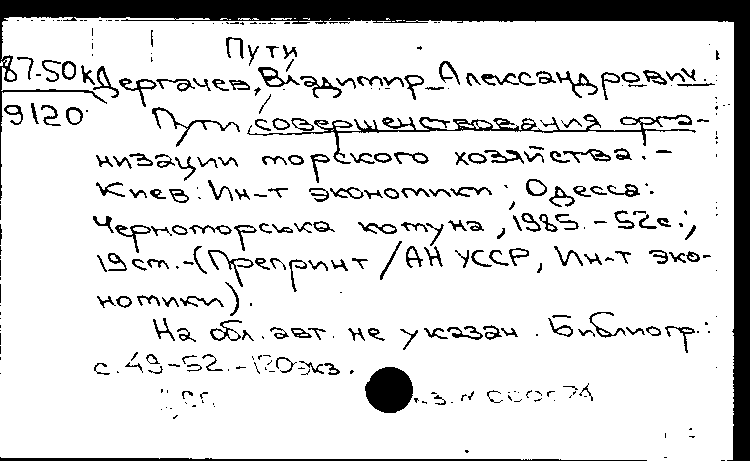 Пути
87-50к Дергачев, Владимир Александрович.
9120 Пути совершенствования орга-
низации морского хозяйства. -
Киев: Ин-т экономики; Одесса:
Черноморська комуна, 1985. - 52с.;
19см. - (Препринт / АН УССР, Ин-т эко-
номики).
На обл. авт. не указан. Библиогр.:
с. 49-52. - 120экз.